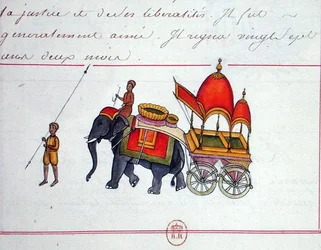 la justice et de les liberalités. Il fut
generalement aimé. Il regna vingt sept
ans deux mois.